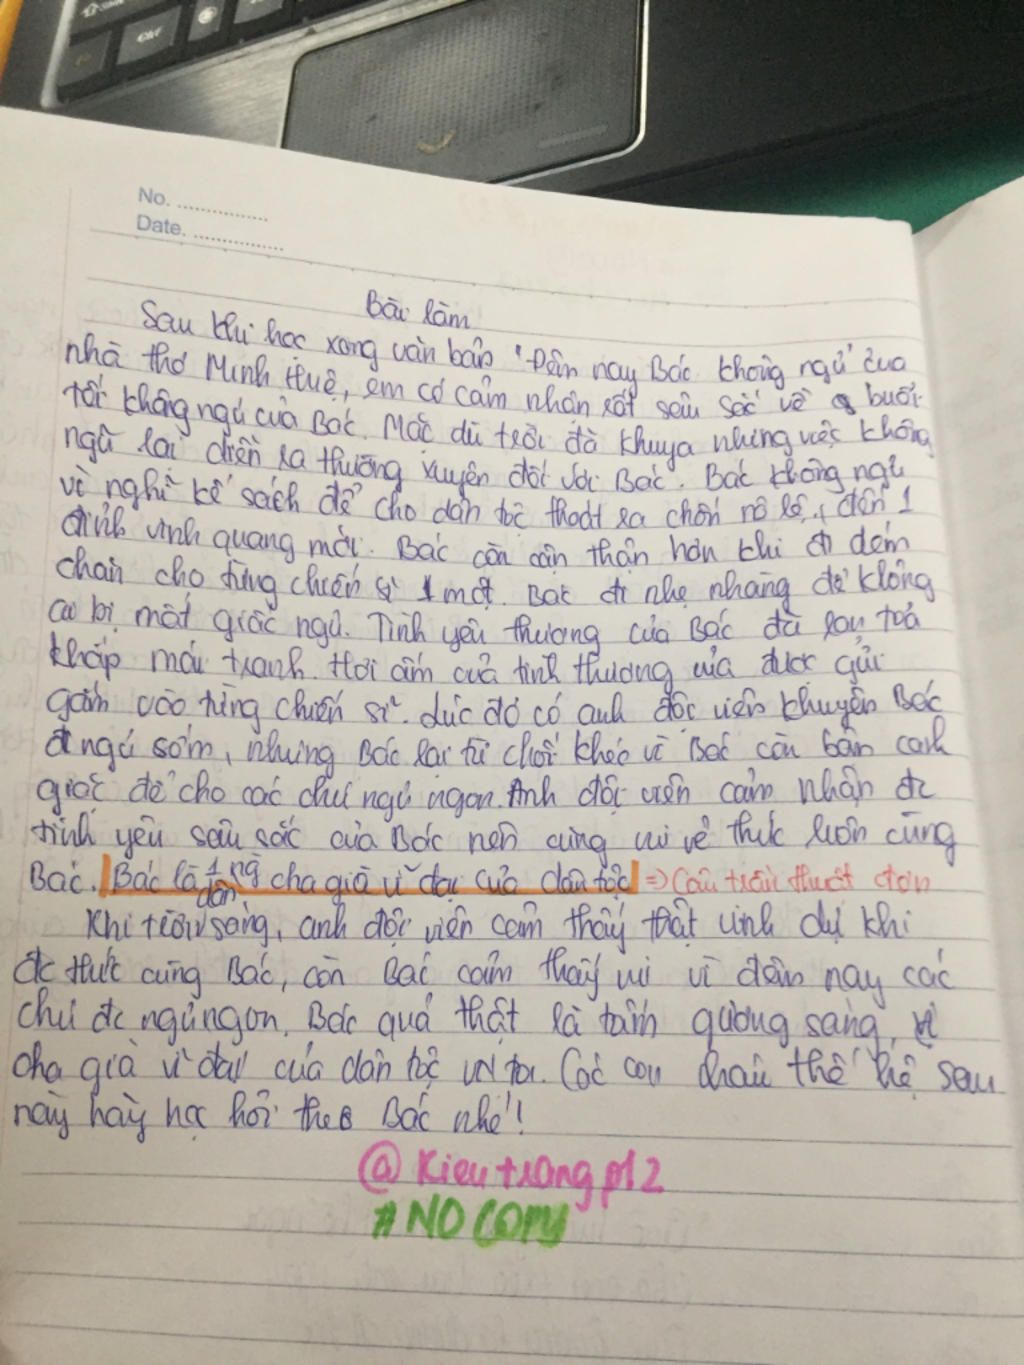 No. ................
Date. ................
Bài làm
Sau khi học xong văn bản "Đêm nay Bác không ngủ" của
nhà thơ Minh Huệ, em có cảm nhận rất sâu sắc về buổi
tối không ngủ của Bác. Mặc dù trời đã khuya nhưng việc không
ngũ lại diễn ra thường xuyên đối với Bác. Bác không ngủ
vì nghĩ kế sách để cho dân tộc thoát ra chốn nô lệ, đến 1
đỉnh vinh quang mới. Bác còn cẩn thận hơn khi đi dém
chăn cho từng chiến sĩ 1 một. Bác đi nhẹ nhàng để không
ai bị mất giấc ngủ. Tình yêu thương của Bác đã lan toả
khắp mái tranh. Hơi ấm của tình thương vừa được gửi
gắm vào từng chiến sĩ. Lúc đó có anh đội viên khuyên Bác
đi ngủ sớm, nhưng Bác lại từ chối khéo vì Bác còn bận canh
giấc để cho các chú ngủ ngon. Anh đội viên cảm nhận đc
tình yêu sâu sắc của Bác nên cũng vui vẻ thức luôn cùng
Bác. Bác là 1 ng cha già vĩ đại của dân tộc => Câu trần thuật đơn
dân
Khi trời sáng, anh đội viên cảm thấy thật vinh dự khi
đc thức cùng Bác, còn Bác cảm thấy vui vì đêm nay các
chú đc ngủ ngon. Bác quả thật là tấm gương sáng, vị
cha già vĩ đại của dân tộc VN ta. Các con cháu thế hệ sau
này hãy học hỏi theo Bác nhé!
@ Kieutrangpt2
#NO COPY